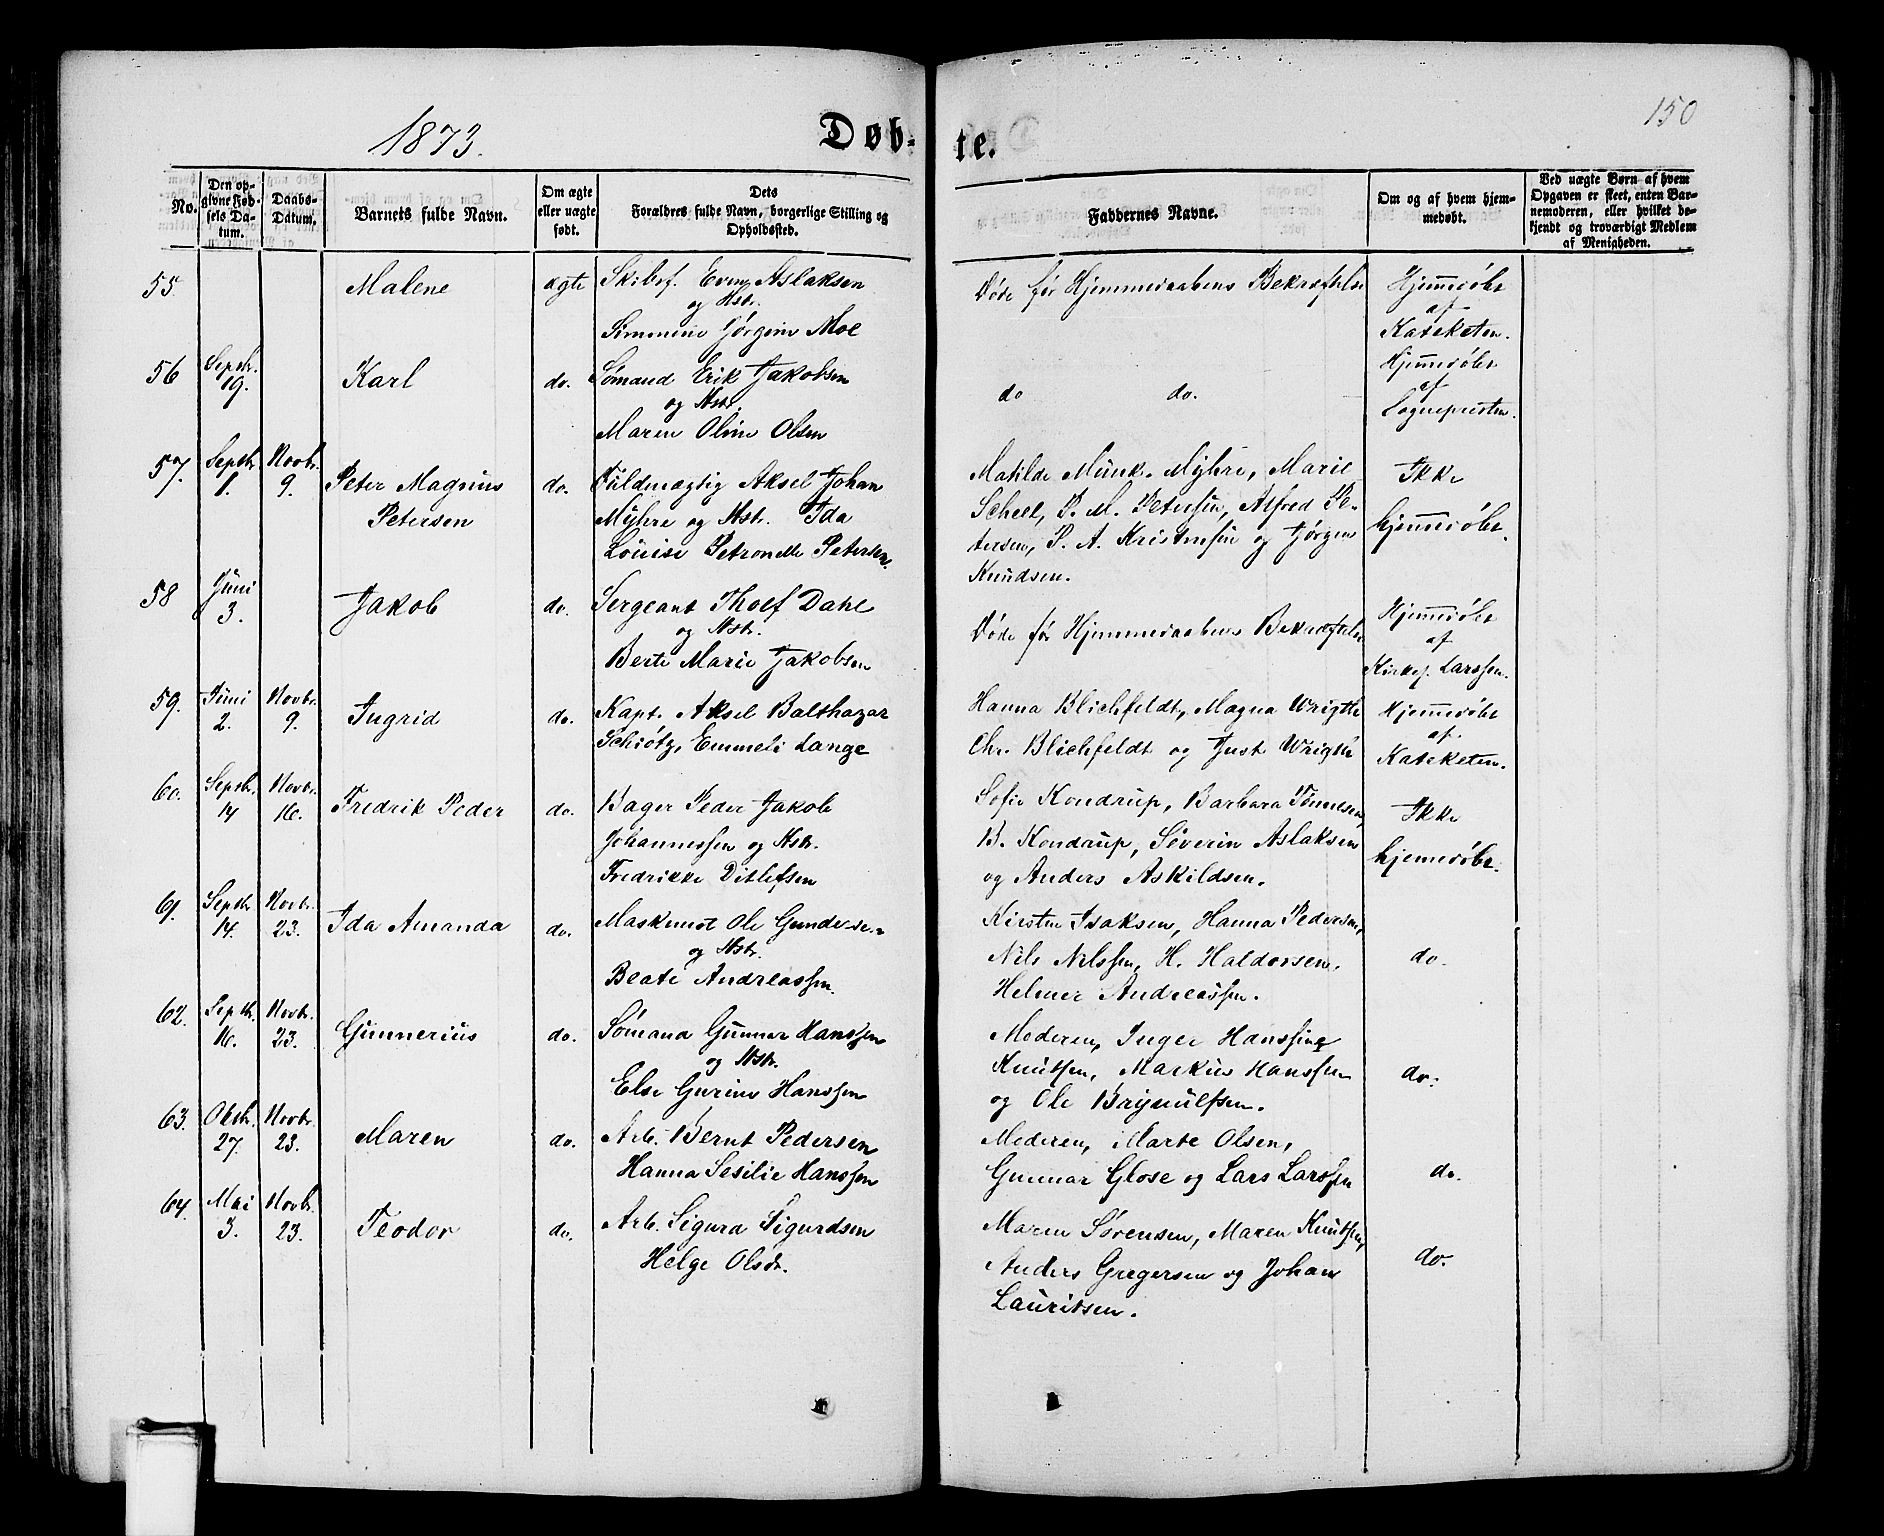 150
1873.
Døb-
te.
No.
Den op-
givne Fød-
sels Da-
tum.
Daabs-
Datum.
Barnets fulde Navn.
Om ægte
eller uægte
født.
Dets
Forældres fulde Navn, borgerlige Stilling og
Opholdssted.
Faddernes Navne.
Om og af hvem hjem-
medøbt.
Ved uægte Børn af hvem
Opgaven er skeet, enten Bar-
nemoderen, eller hvilket be-
kjendt og troværdigt Medlem
af Menigheden.
55
Malene
ægte
Skibsf. Even Aslaksen
og Hstr.
Simmine Jørgine Moe
Døde før Hjemmedaabens Bekræftelse
Hjemmedøbt
af
Kateketen.
56
Septbr.
19.
Karl
do.
Sømand Erik Jakobsen
og Hstr.
Maren Oline Olsen
do do.
Hjemmedøbt
af
Sognepresten.
57.
Septbr
1.
Novbr.
9.
Peter Magnus
Petersen
do.
Fuldmægtig Aksel Johan
Myhre og Hstr. Ida
Louise Petronelle Petersen.
Matilde Munk-Myhre, Marie
Scheel, P. M. Petersen, Alfred Pe-
tersen, P. A. Kristensen og Jørgen
Knudsen.
Ikke
hjemmedøbt.
58
Juni
3.
Jakob
do.
Sergeant Tholf Dahl
og Hstr.
Berte Marie Jakobsen
Døde før Hjemmedaabens Bekræftelse
Hjemmedøbt
af
Kirkes. Larssen.
59.
Juni
2.
Novbr.
9.
Ingrid
do.
Kapt. Aksel Balthazar
Schiøtz, Emmeli Lange
Hanna Blichfeldt, Magna Wrigth
Chr. Blichfeldt og Just Wrigth
Hjemmedøbt
af
Kateketen.
60.
Septbr.
14
Novbr.
16.
Fredrik Peder
do.
Bager Peder Jakob
Johannessen og Hstr.
Fredrikke Ditlefsen
Sofie Kondrup, Barbara Tønnesen,
B. Kondrup, Søverin Aslaksen
og Anders Askildsen.
Ikke
hjemedøbt.
61.
Septbr
14.
Novbr.
23.
Ida Amanda
do.
Maskinist Ole Gundersen
og Hstr.
Beate Andreassen.
Kirsten Isaksen, Hanna Pedersen,
Nils Nilssen, H. Haldorsen.
Helmer Andreassen.
do.
62.
Septbr.
16.
Novbr.
23.
Gunnerius
do.
Sømand Gunner Hanssen
og Hstr.
Else Gurine Hanssen
Moderen, Inger Hanssine
Knutsen, Markus Hanssen
og Ole Brynulfsen.
do.
63.
Oktbr.
27.
Novbr.
23.
Maren
do.
Arb. Bernt Pedersen
Hanna Sesilie Hanssen
Moderen, Marte Olsen,
Gunnar Glose og Lars Larssen
do.
64.
Mai
3.
Novbr.
23.
Teodor
do.
Arb. Sigurd Sigurdsen
Helge Olsdr.
Maren Sørensen, Maren Knutsen,
Anders Gregersen og Johan
Lauritsen.
do.